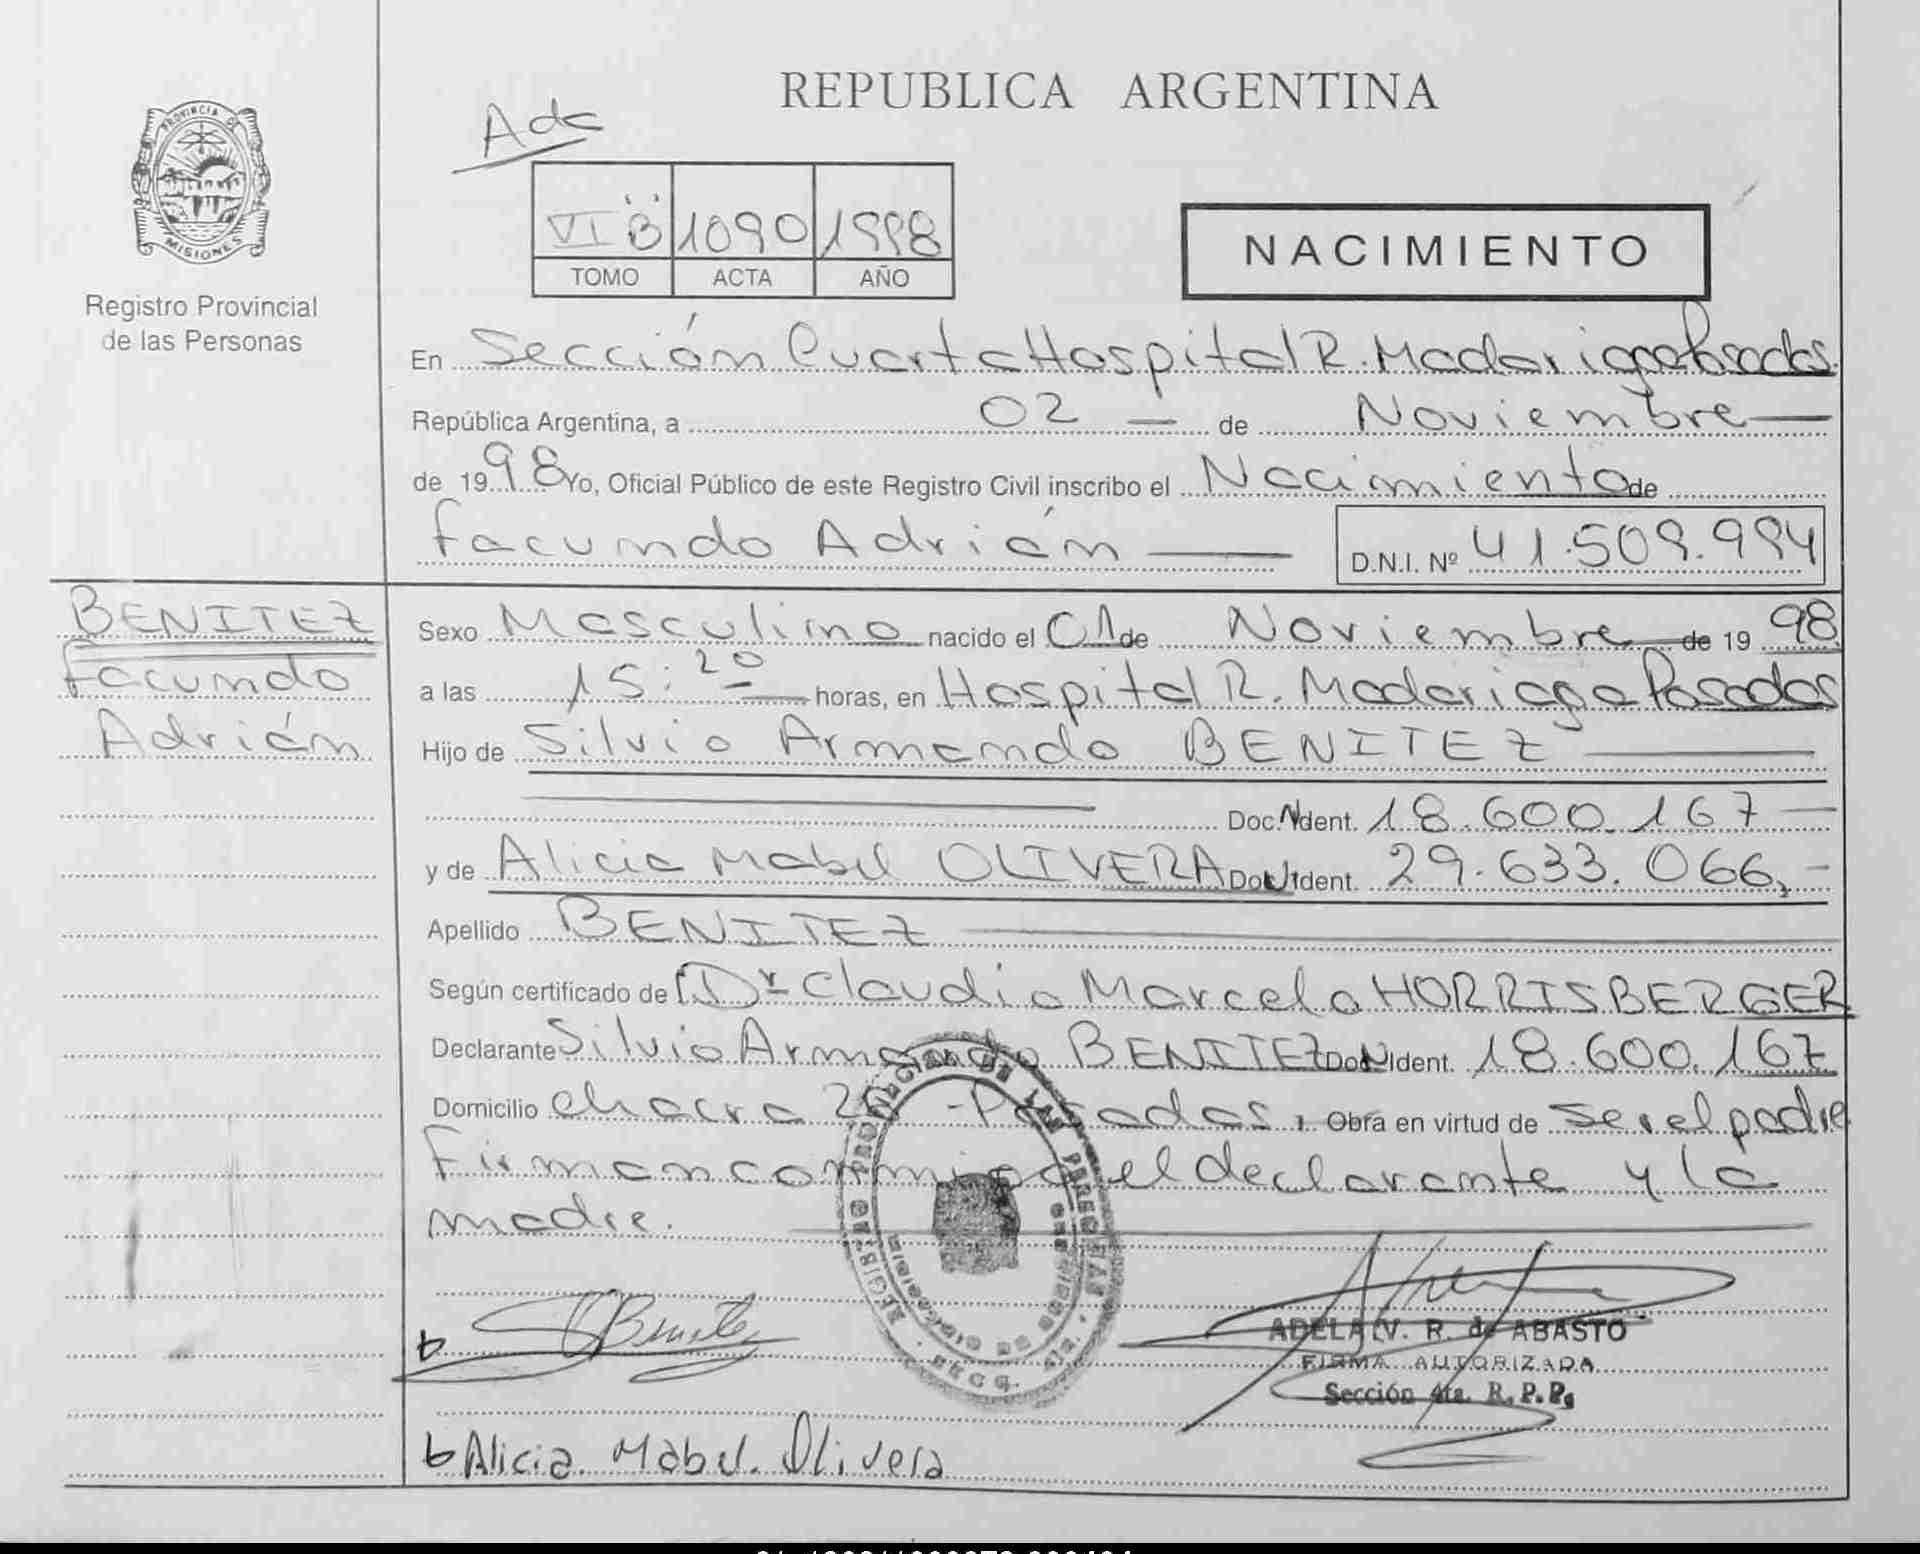 REPUBLICA ARGENTINA
PROVINCIA DE
MISIONES
Registro Provincial
de las Personas
Ada
VI "B" 1090 1998
TOMO ACTA AÑO
NACIMIENTO
En Sección Cuarta Hospital R. Madariaga Posadas
República Argentina, a 02 — de Noviembre —
de 1998 Yo, Oficial Público de este Registro Civil inscribo el Nacimiento de
Facundo Adrián —
D.N.I. Nº 41.509.994
BENITEZ
Facundo
Adrián
Sexo Masculino nacido el 01 de Noviembre de 19 98
a las 15:20 — horas, en Hospital R. Madariaga Posadas
Hijo de Silvio Armando BENITEZ —
Doc. Ident. 18.600.167 —
y de Alicia Mabel OLIVERA Doc. Ident. 29.633.066,-
Apellido BENITEZ —
Según certificado de Dr Claudio Marcelo HORRISBERGER
Declarante Silvio Armando BENITEZ Doc. Ident. 18.600.167
Domicilio Chacra - Posadas, Obra en virtud de ser el padre
Firman conmigo el declarante y la
madre.
REGISTRO PROVINCIAL DE LAS PERSONAS
SBenitez
ADELA V. R. de ABASTO
FIRMA AUTORIZADA
Sección 4ta. R. P. P.
Alicia. Mabel. Olivera